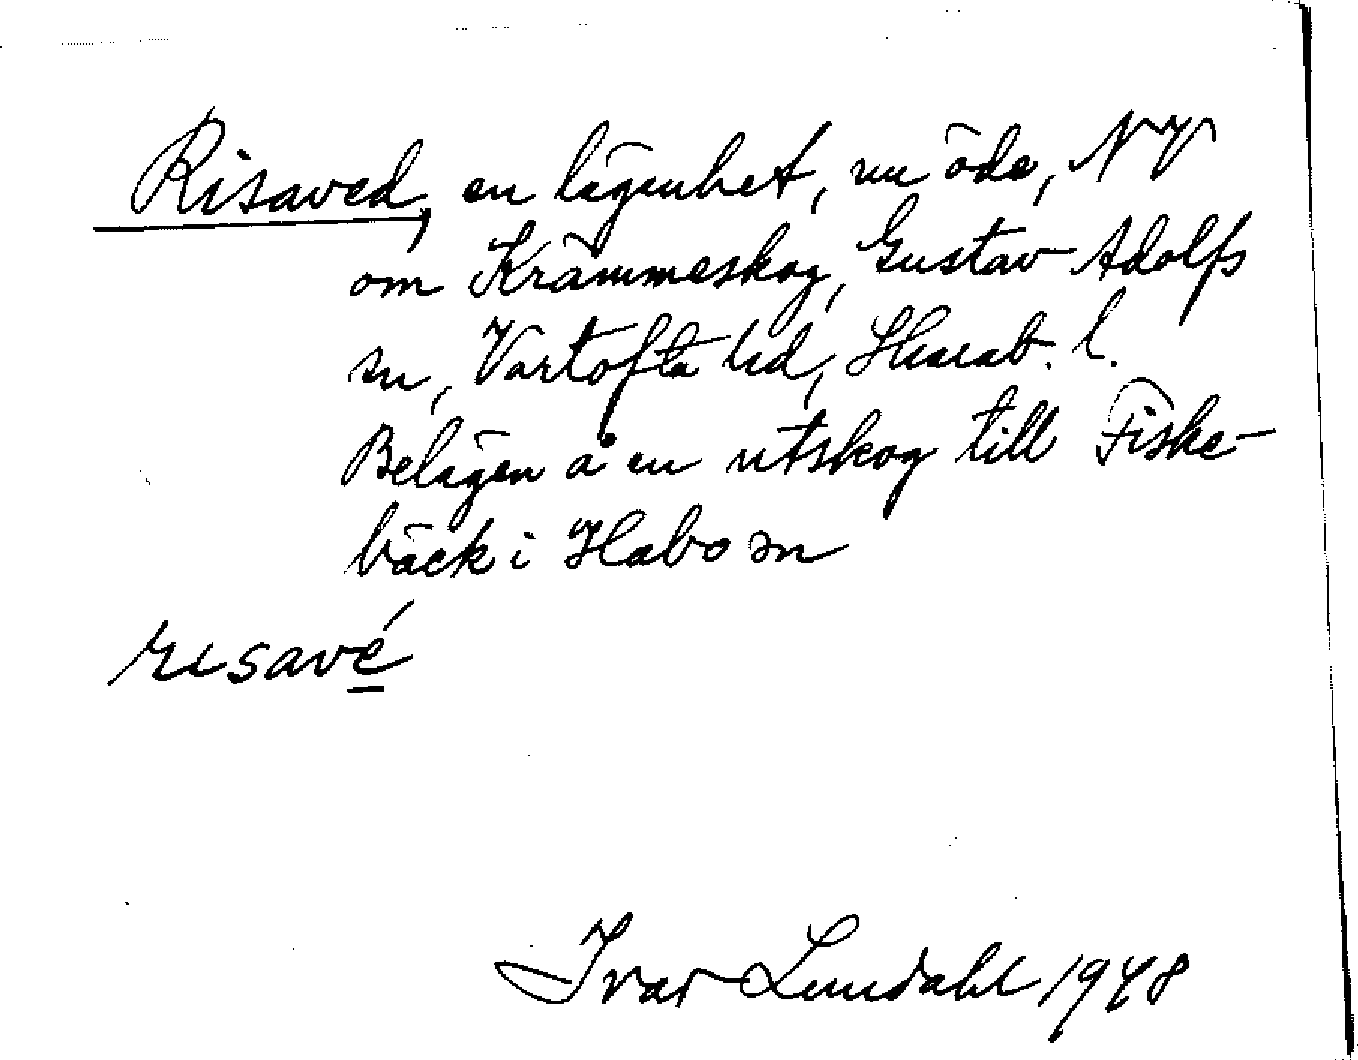 Risaved, en lägenhet, nu öde, NV
om Krämmeskog, Gustav Adolfs
sn, Vartofta hd, Skarab. l.
Belägen å en utskog till Fiske-
bäck i Habo sn
risavé
Ivar Lundahl 1948